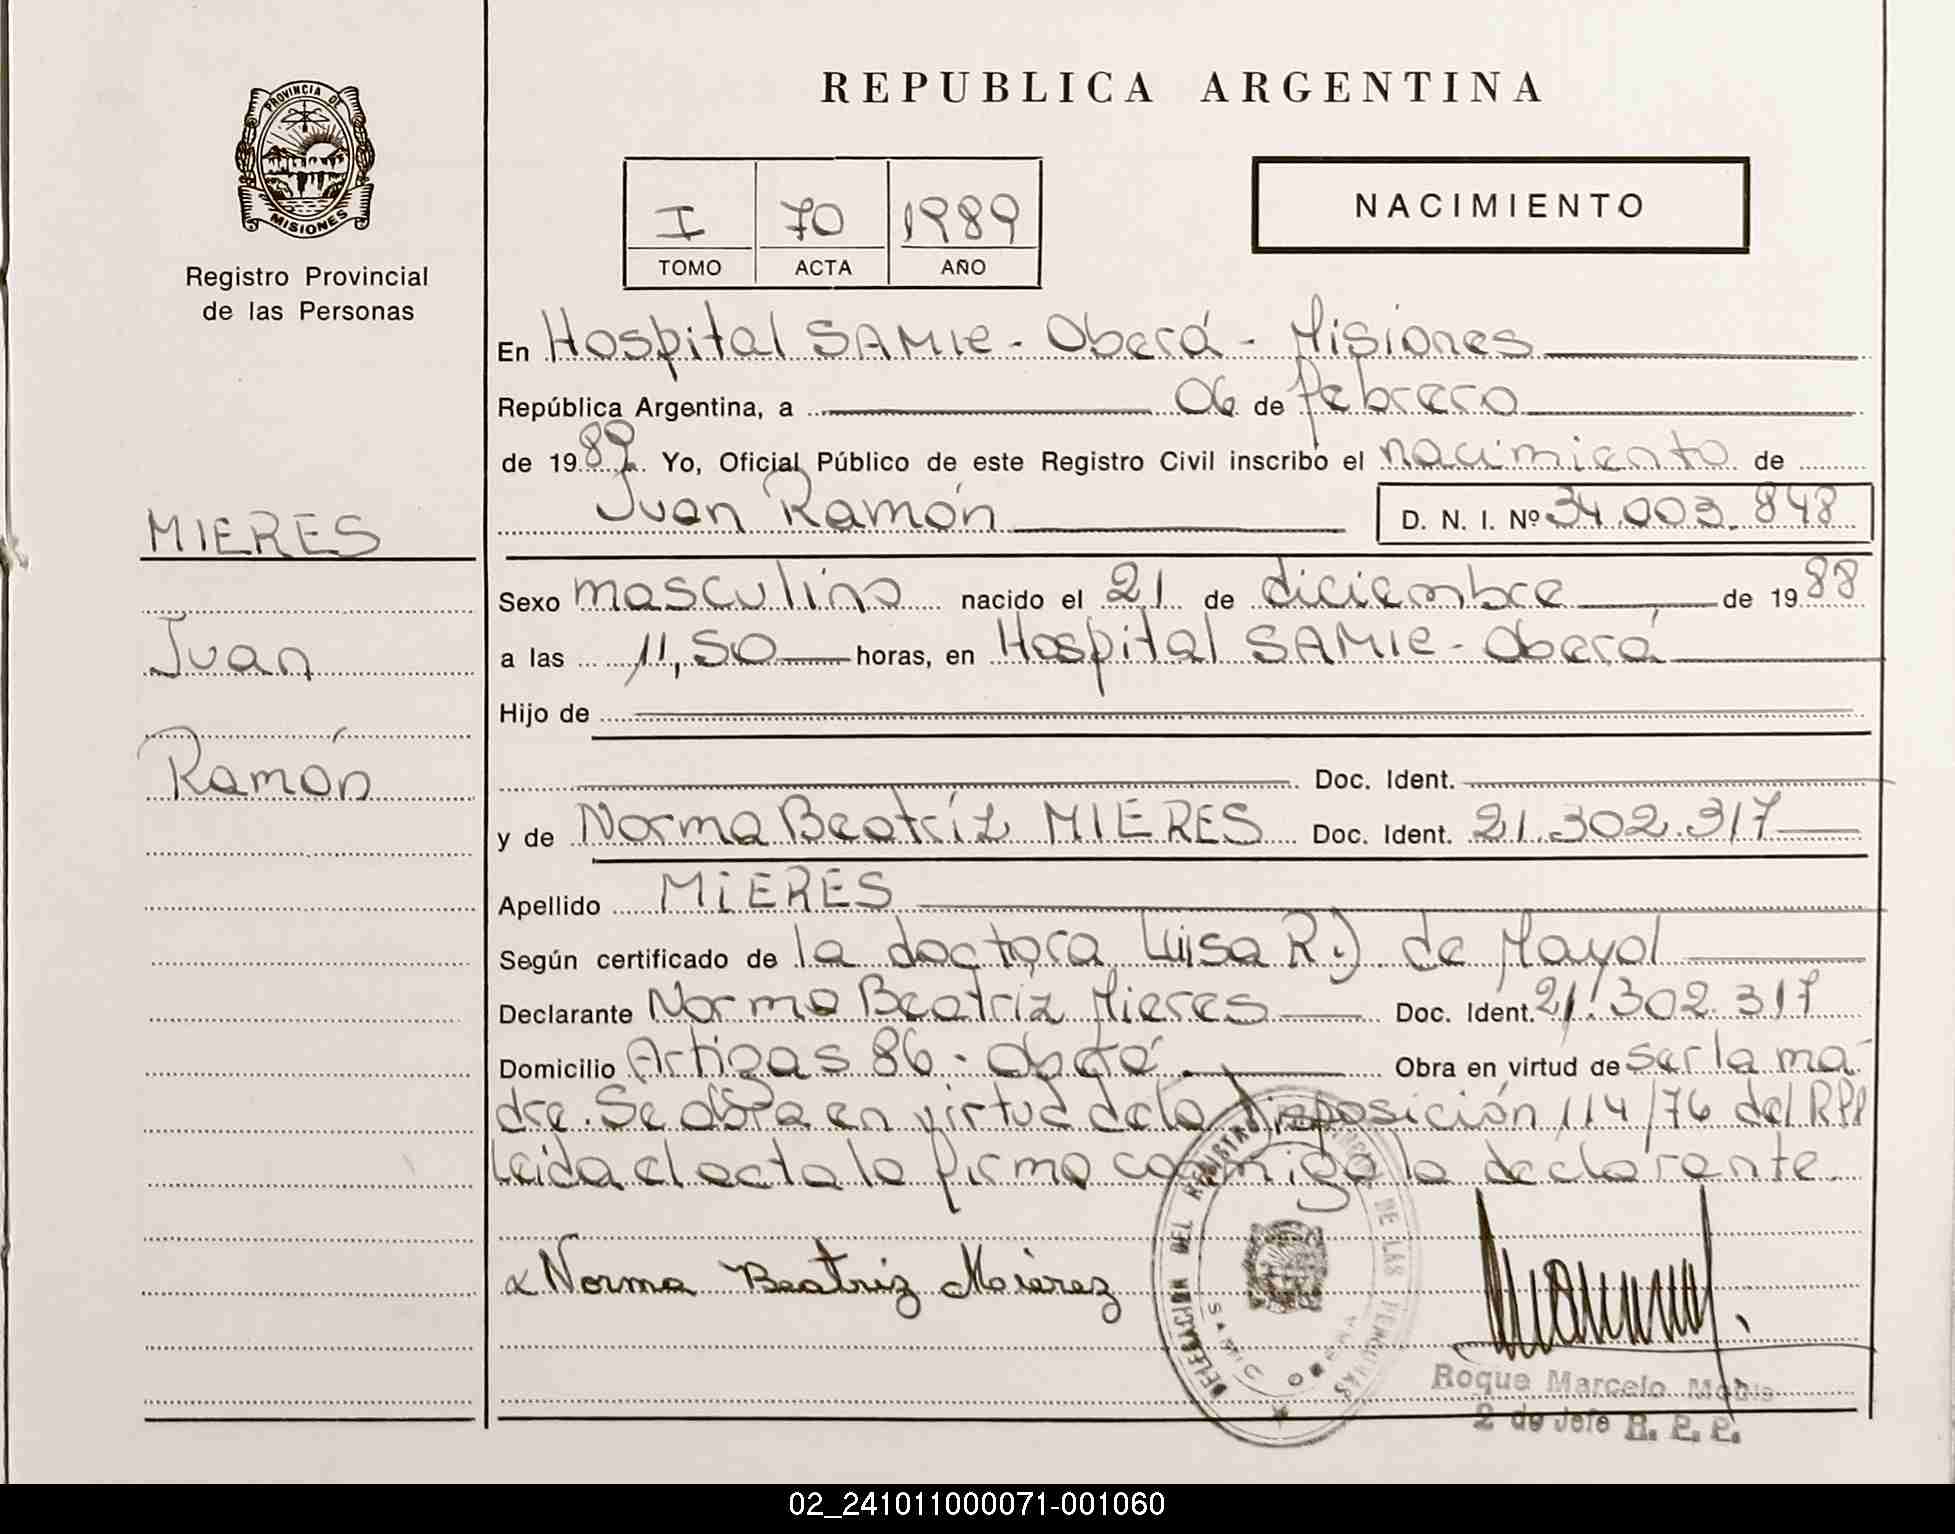 REPUBLICA ARGENTINA
PROVINCIA DE
MISIONES
Registro Provincial
de las Personas
I 70 1989
TOMO ACTA AÑO
NACIMIENTO
En Hospital SAMIC - Oberá - Misiones
República Argentina, a 06 de febrero
de 1989. Yo, Oficial Público de este Registro Civil inscribo el nacimiento de
Juan Ramón D. N. I. Nº 34.003.848
MIERES
Juan
Ramón
Sexo masculino nacido el 21 de diciembre de 1988
a las 11,50 horas, en Hospital SAMIC - Oberá
Hijo de
Doc. Ident.
y de Norma Beatríz MIERES Doc. Ident. 21.302.317
Apellido MIERES
Según certificado de la doctora Luisa R. J de Mayol
Declarante Norma Beatriz Mieres Doc. Ident. 21.302.317
Domicilio Artigas 86 - Oberá Obra en virtud de ser la ma-
dre. Se obra en virtud de la Disposición 114/76 del RPP
Leída el acta la firma conmigo la declarante
Norma Beatriz Moierez
DELEGACION DEL REGISTRO DE LAS PERSONAS
SAMIC OBERA
Roque Marcelo
2 do Jefe R. P. P.
02_241011000071-001060